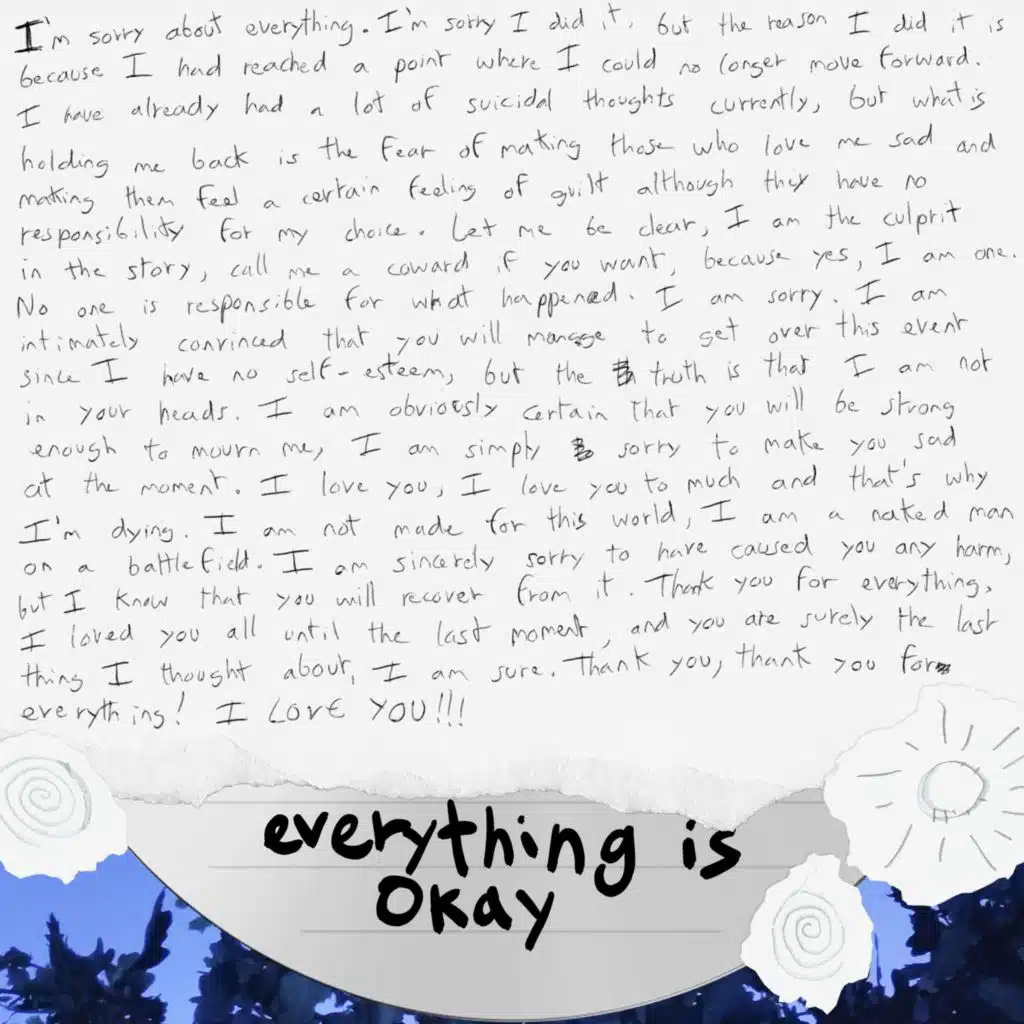 I'm sorry about everything. I'm sorry I did it, but the reason I did it is
because I had reached a point where I could no longer move forward.
I have already had a lot of suicidal thoughts currently, but what is
holding me back is the fear of making those who love me sad and
making them feel a certain feeling of guilt although they have no
responsibility for my choice. Let me be clear, I am the culprit
in the story, call me a coward if you want, because yes, I am one.
No one is responsible for what happened. I am sorry. I am
intimately convinced that you will manage to get over this event
since I have no self-esteem, but the truth is that I am not
in your heads. I am obviously certain that you will be strong
enough to mourn me, I am simply sorry to make you sad
at the moment. I love you, I love you to much and that's why
I'm dying. I am not made for this world, I am a naked man
on a battlefield. I am sincerely sorry to have caused you any harm,
but I know that you will recover from it. Thank you for everything,
I loved you all until the last moment, and you are surely the last
thing I thought about, I am sure. Thank you, thank you for
everything! I LOVE YOU!!!
everything is
okay